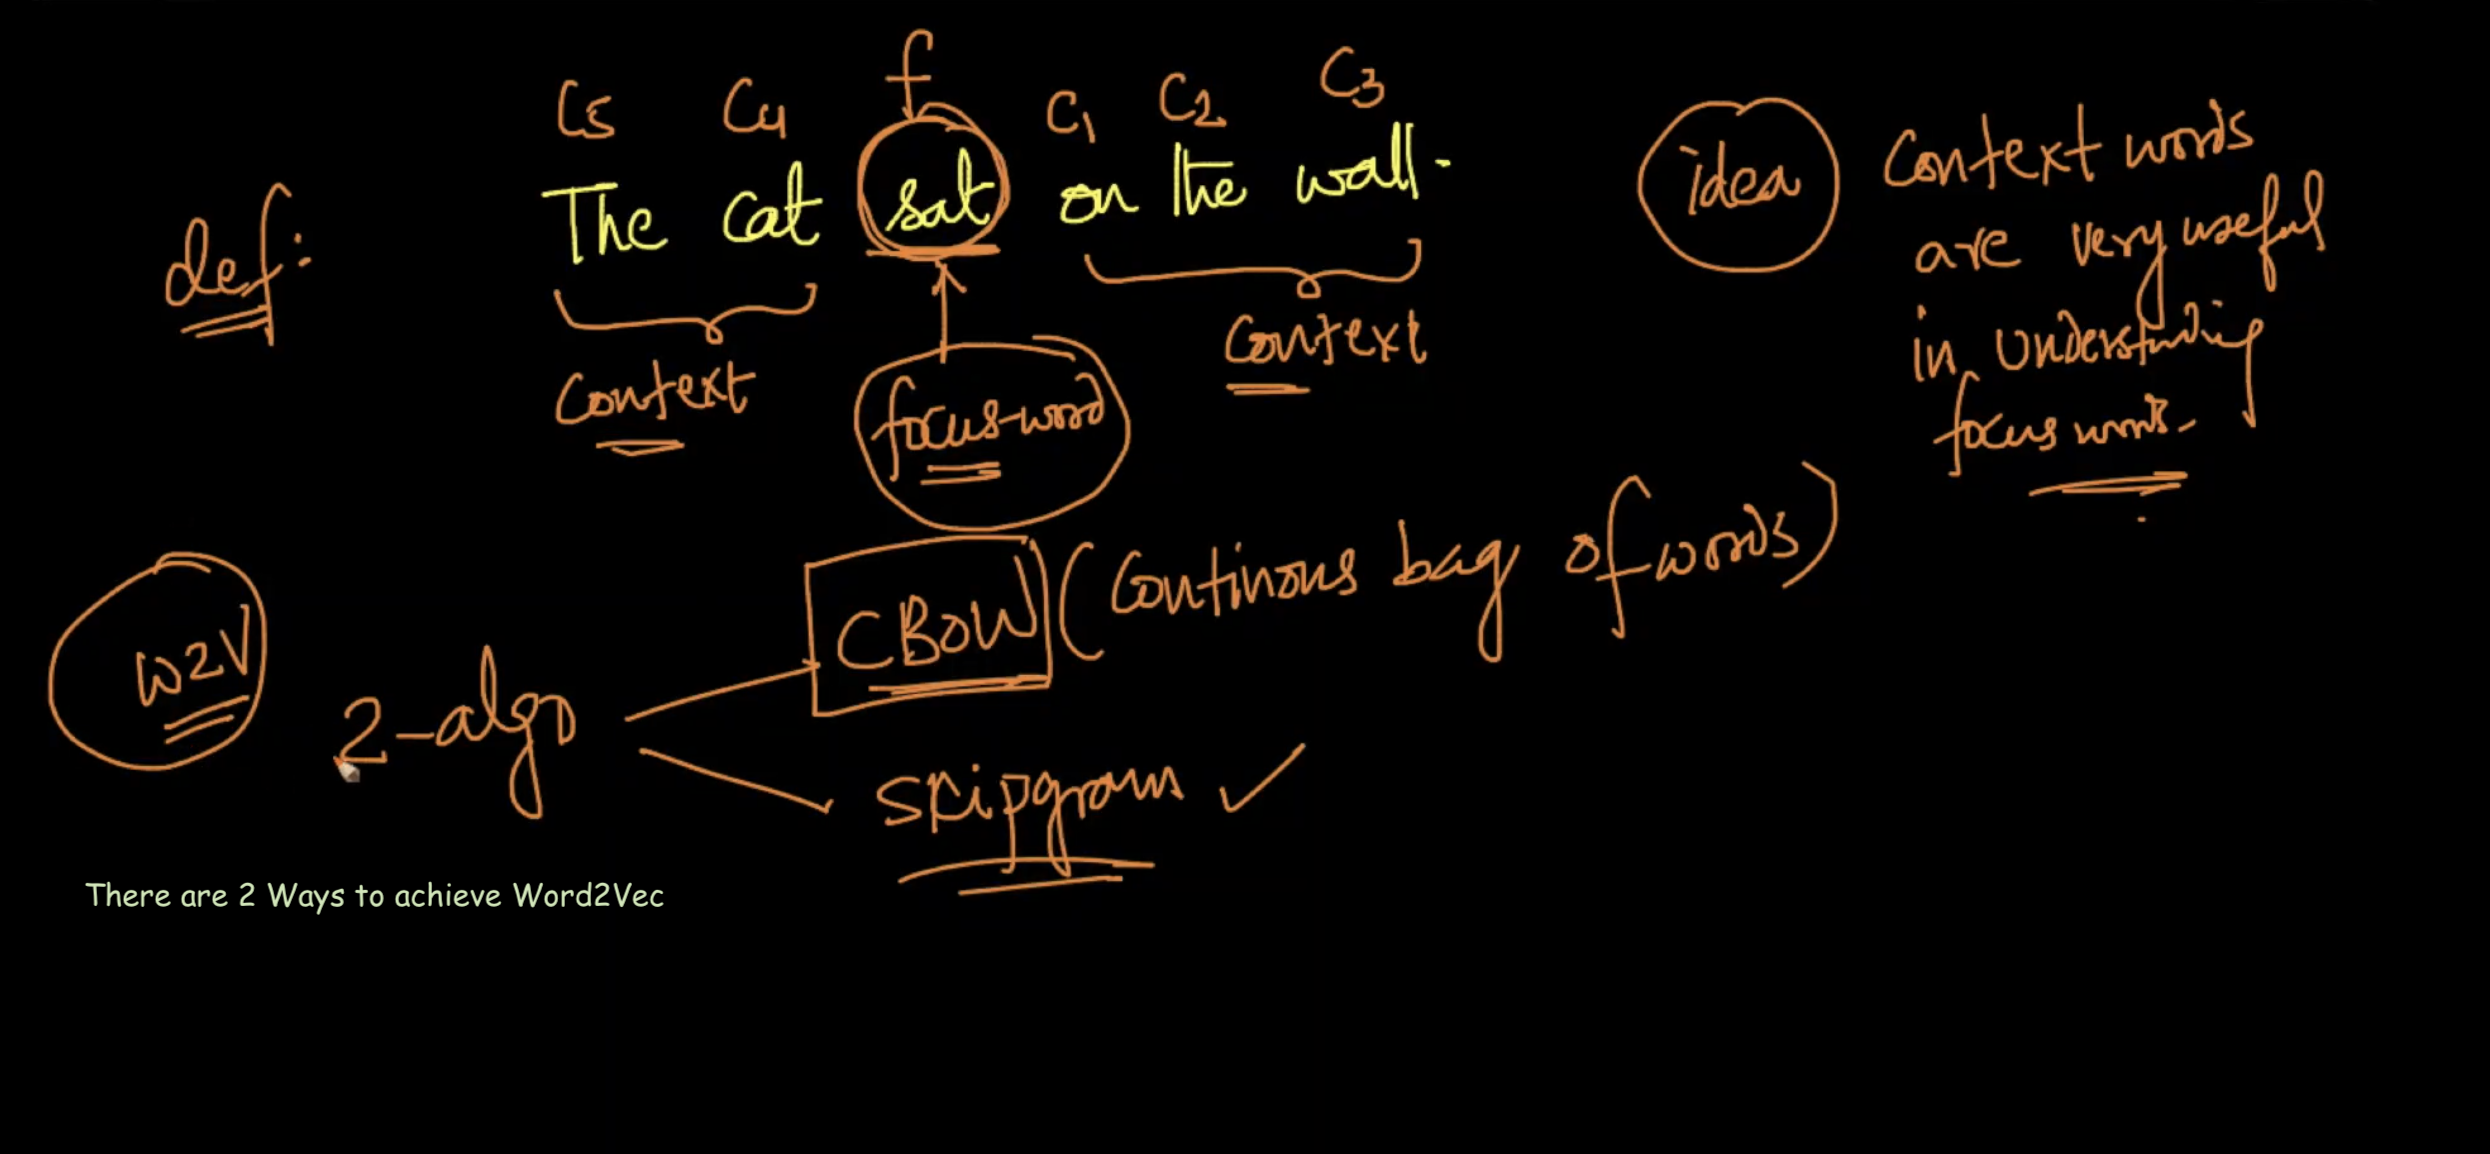 f
C5 C4 C1 C2 C3
The cat sat on the wall.
def:
Context
focus-word
Context
idea
Context words
are very useful
in understanding
focus words.
W2V
2-algo
CBOW (Continous bag of words)
Skipgram ✓
There are 2 Ways to achieve Word2Vec